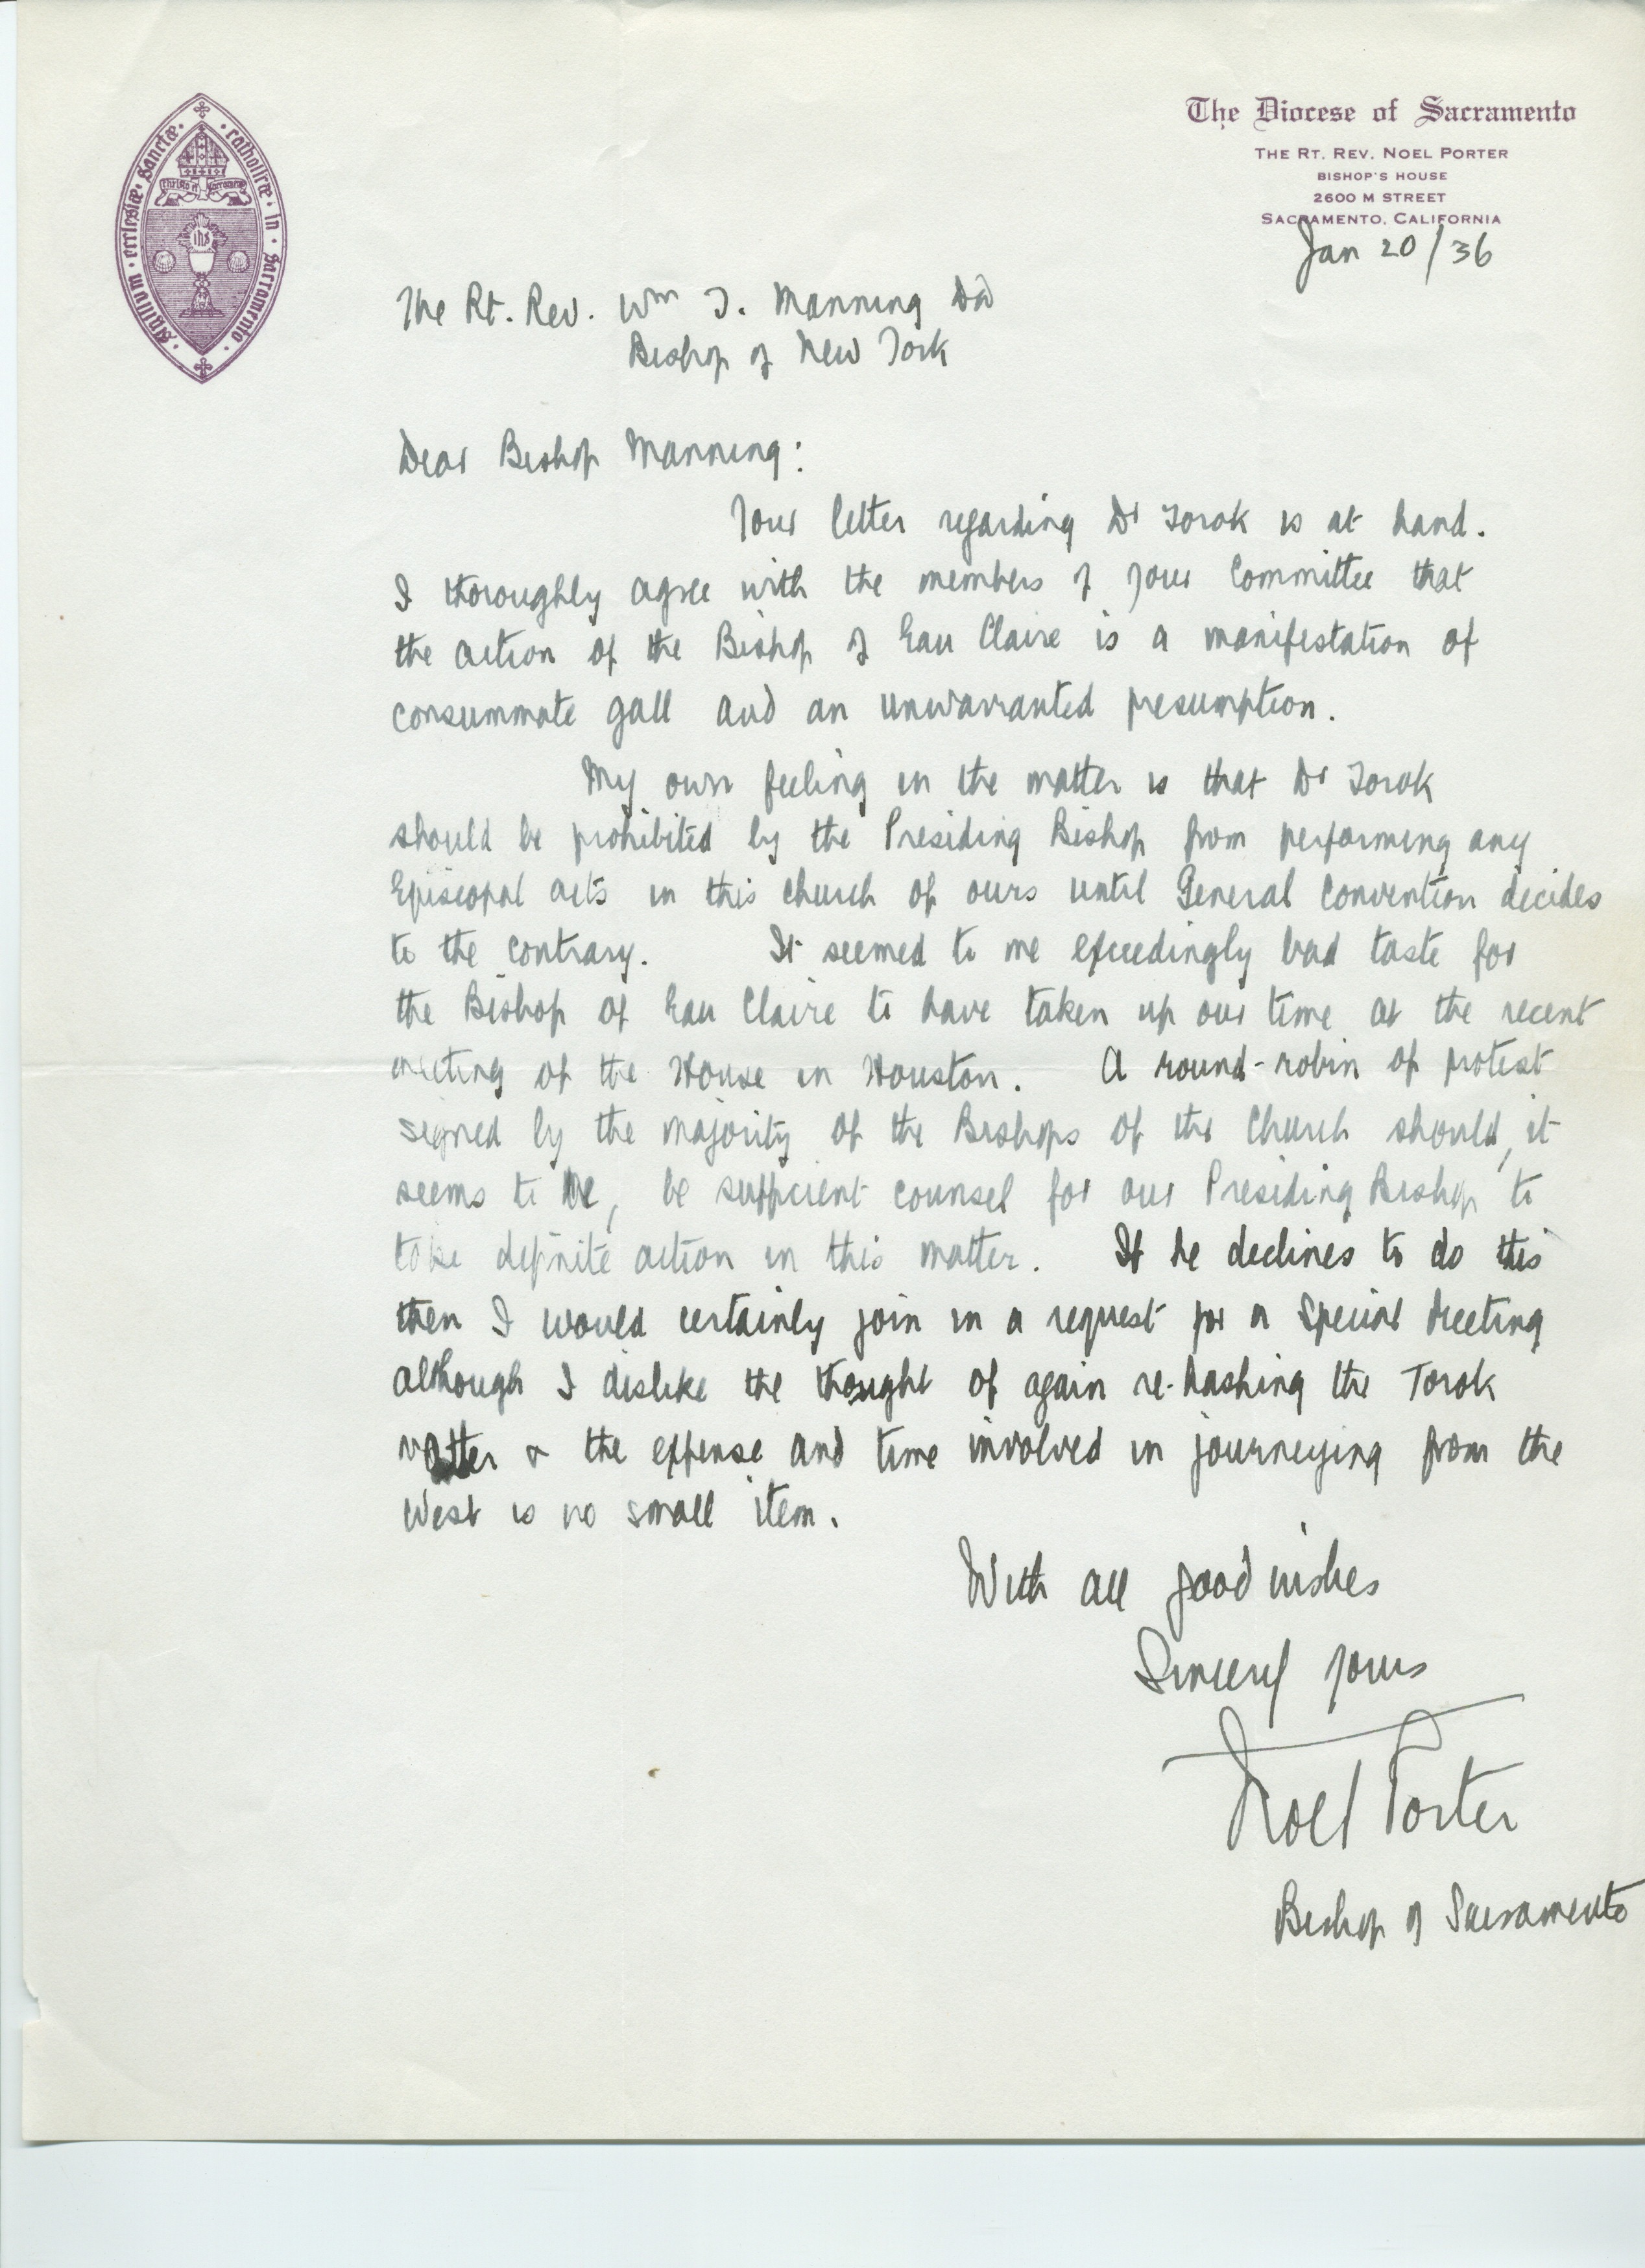 The Diocese of Sacramento
THE RT. REV. NOEL PORTER
BISHOP'S HOUSE
2600 M STREET
SACRAMENTO, CALIFORNIA
Sigillum · ecclesiæ · Sanctæ · catholicæ · in · Sacramento
ihs
Jan 20/36
The Rt. Rev. Wm T. Manning DD
Bishop of New York
Dear Bishop Manning:
Your letter regarding Dr Torok is at hand.
I thoroughly agree with the members of your Committee that
the action of the Bishop of Eau Claire is a manifestation of
consummate gall and an unwarranted presumption.
My own feeling in the matter is that Dr Torok
should be prohibited by the Presiding Bishop from performing any
Episcopal acts in this church of ours until General Convention decides
to the contrary. It seemed to me exceedingly bad taste for
the Bishop of Eau Claire to have taken up our time at the recent
meeting of the House in Houston. A round-robin of protest
signed by the majority of the Bishops of the Church should, it
seems to me, be sufficient counsel for our Presiding Bishop to
take definite action in this matter. If he declines to do this
then I would certainly join in a request for a Special Meeting
although I dislike the thought of again re-hashing the Torok
matter & the expense and time involved in journeying from the
West is no small item.
With all good wishes
Sincerely yours
Noel Porter
Bishop of Sacramento